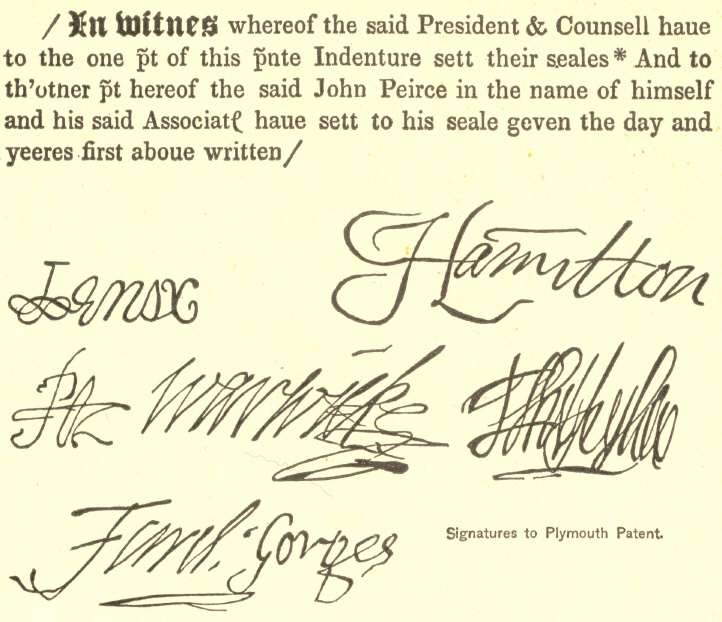 / In witnes whereof the said President & Counsell haue
to the one p̃t of this p̃nte Indenture sett their seales* And to
th'other p̃t hereof the said John Peirce in the name of himself
and his said Associatꝭ haue sett to his seale geven the day and
yeeres first aboue written/
Hamilton
Lenox
Ro Warwick
Ferd. Gorges
Signatures to Plymouth Patent.